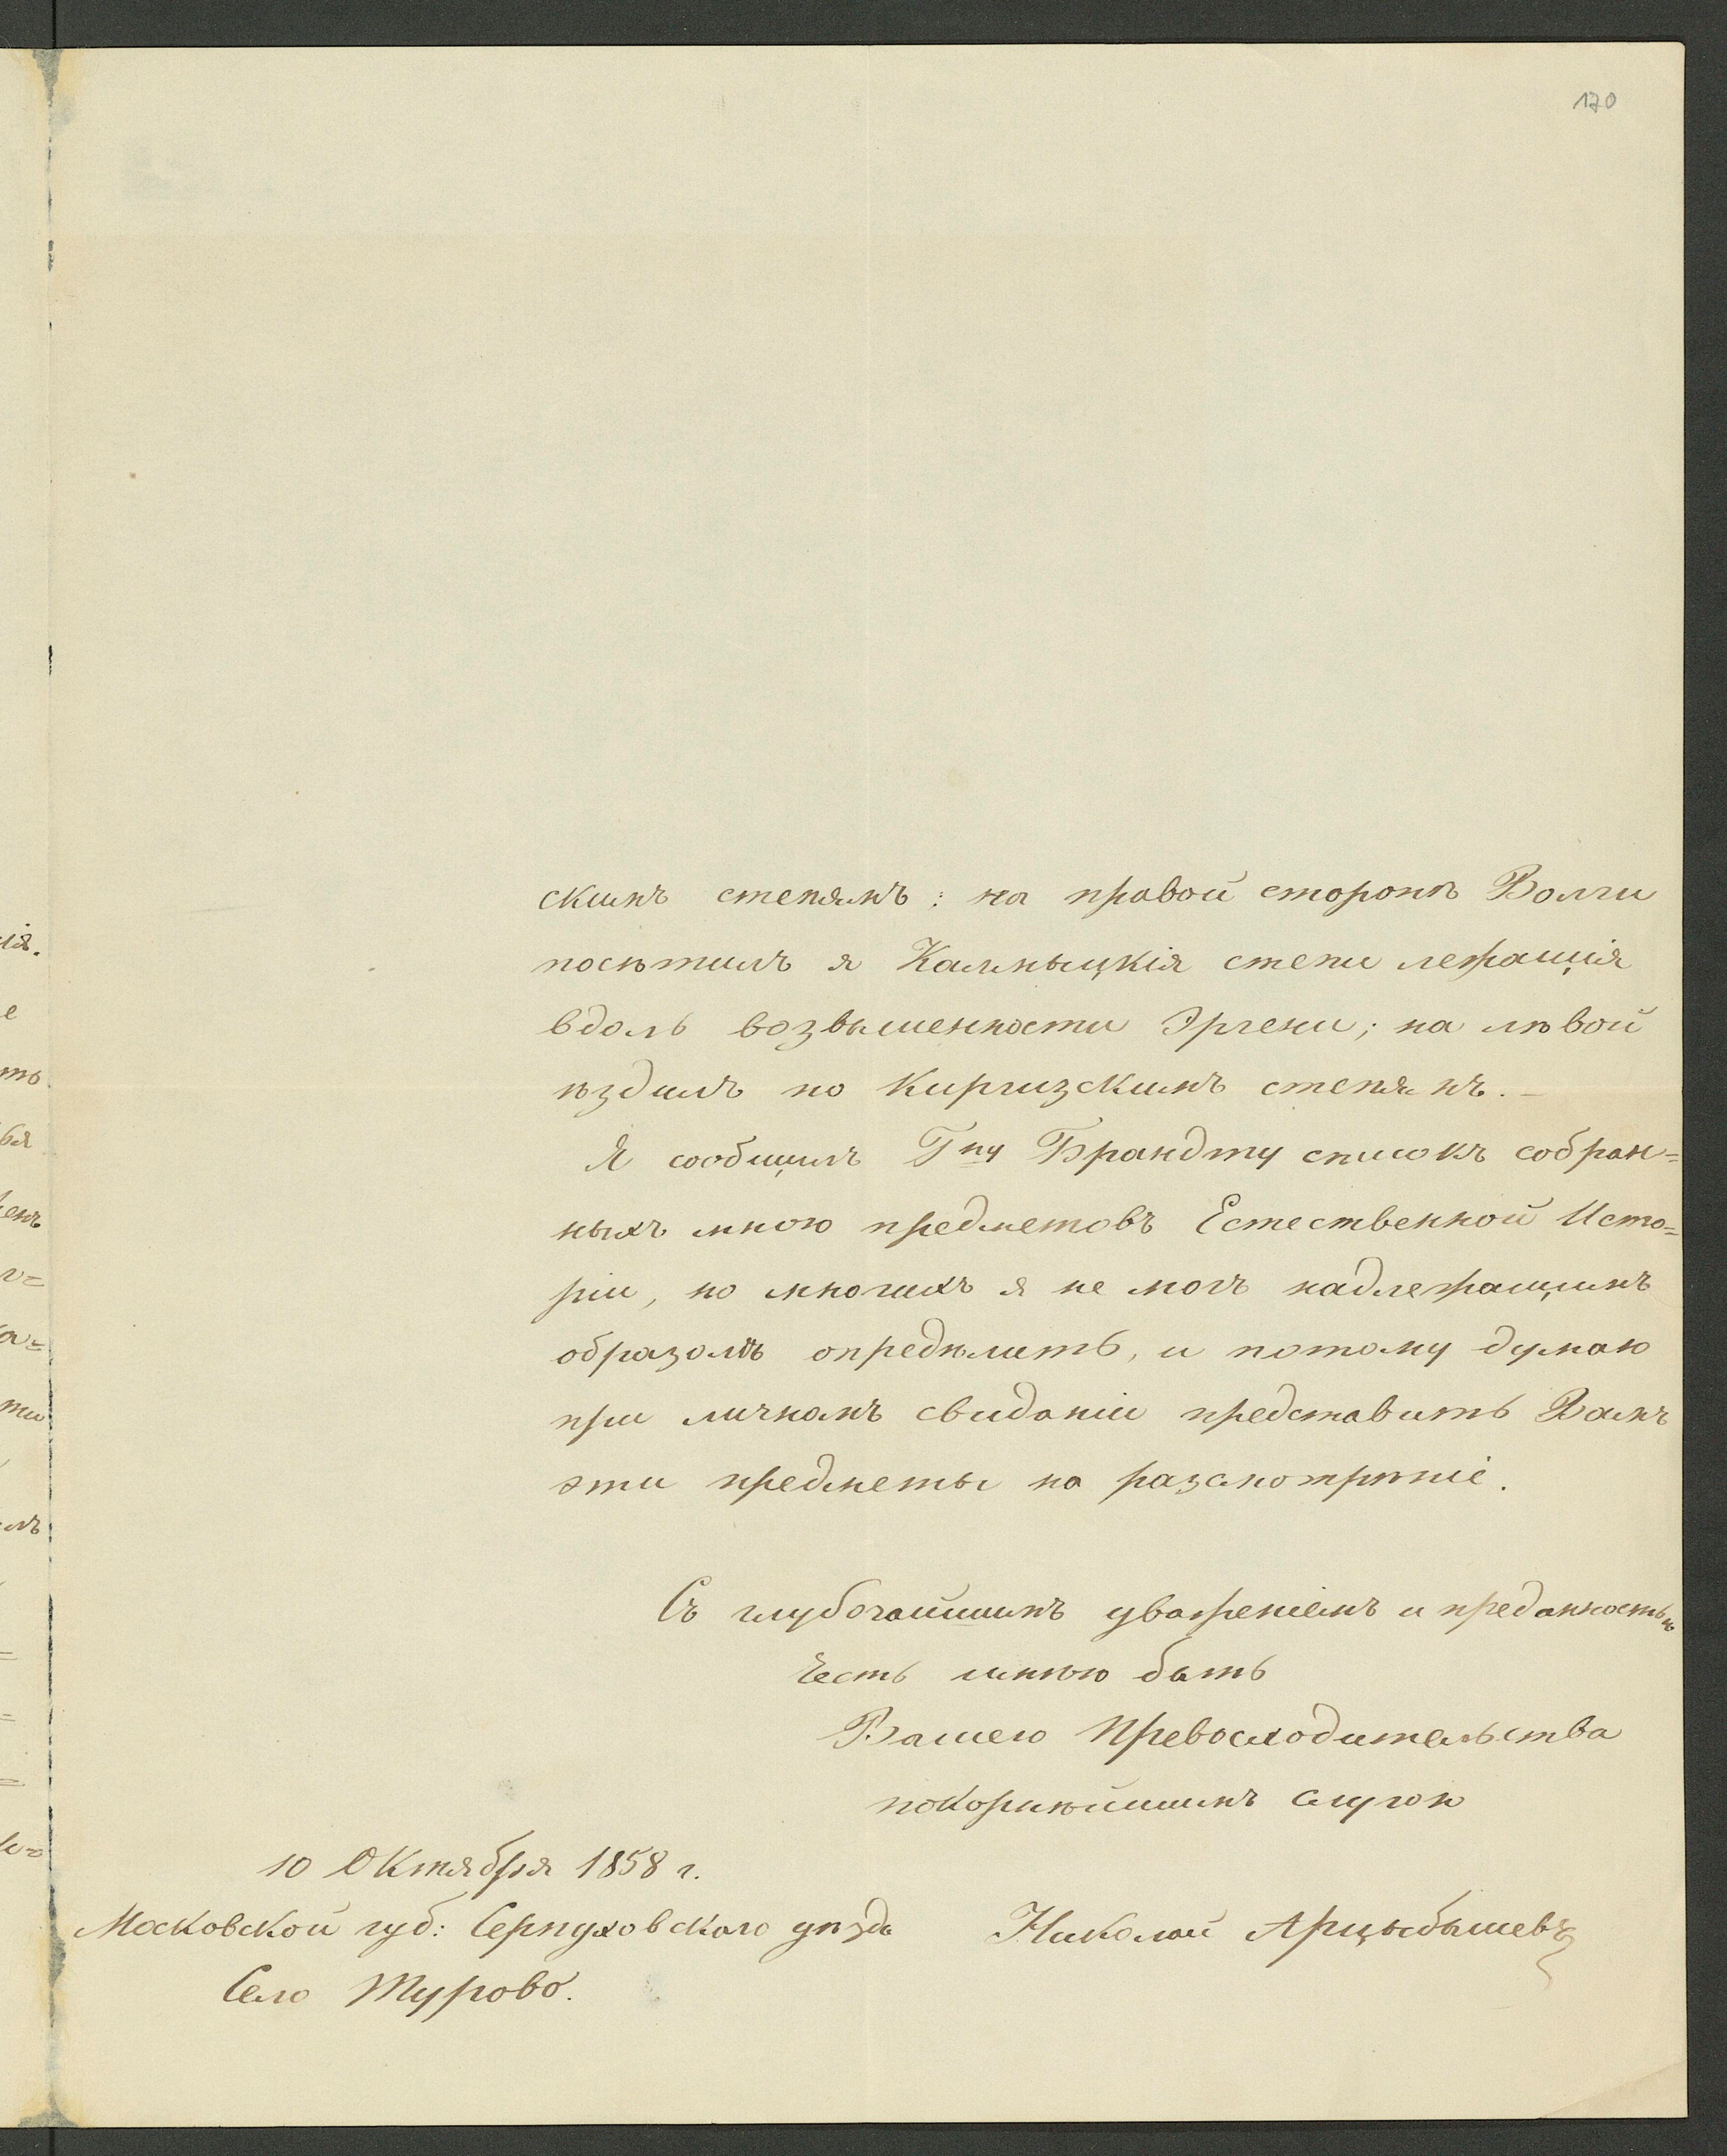 170
скимъ степямъ: на правой сторонѣ Волги
посѣтилъ я Калмыцкія степи лежащія
вдоль возвышенности Эргени; на лѣвой
ѣздилъ по Киргизскимъ степямъ. –
Я сообщилъ Гну Брандту списокъ собран=
ныхъ мною предметовъ Естественной Исто=
ріи, но многихъ я не могъ надлежащимъ
образомъ опредѣлить, и потому думаю
при личномъ свиданіи представить Вамъ
эти предметы на разсмотрѣніе.
Съ глубочайшимъ уваженіемъ и преданностью
честь имѣю быть
Вашего Превосходительства
покорнѣйшимъ слугою
10 Октября 1858 г.
Московской губ: Серпуховского уѣзда
Николай Арцыбышевъ
Село Турово.
ія.
е
ть
бя
енъ
г=
а=
ти
мъ